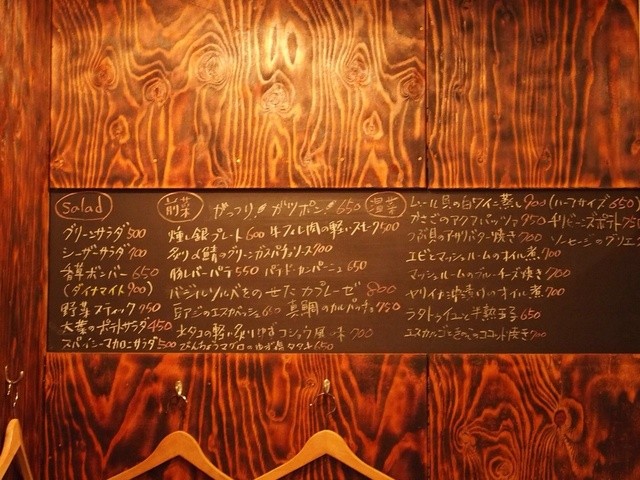 Salad
グリーンサラダ 500
シーザーサラダ 700
香草ボンバー 650
(ダイナマイト 900)
野菜スティック 750
大葉のポテトサラダ 450
スパイシーマカロニサラダ 500
前菜 がっつり!! ガツポン!! 650
燻し銀プレート 600 牛フィレ肉の軽いスモーク 500
炙り〆鯖のグリーンガスパチョソース 700
豚レバーパテ 550 パテドカンパーニュ 650
バジルソルベをのせたカプレーゼ 800
豆アジのエスカベッシュ 600 真鯛のカルパッチョ 750
水タコの軽い炙りゆずコショウ風味 700
びんちょうマグロのゆず塩タタキ 650
温菜 ムール貝の白ワイン蒸し 900 (ハーフサイズ 650)
かさごのアクアパッツァ 950 チリビーンズポテト
つぶ貝のアサリバター焼き 700 ソーセージのグリエ
エビとマッシュルームのオイル煮 700
マッシュルームのブルーチーズ焼き 700
ヤリイカのオイル煮 700
ラタトゥイユと半熟玉子 650
エスカルゴときのこのココット焼き 700